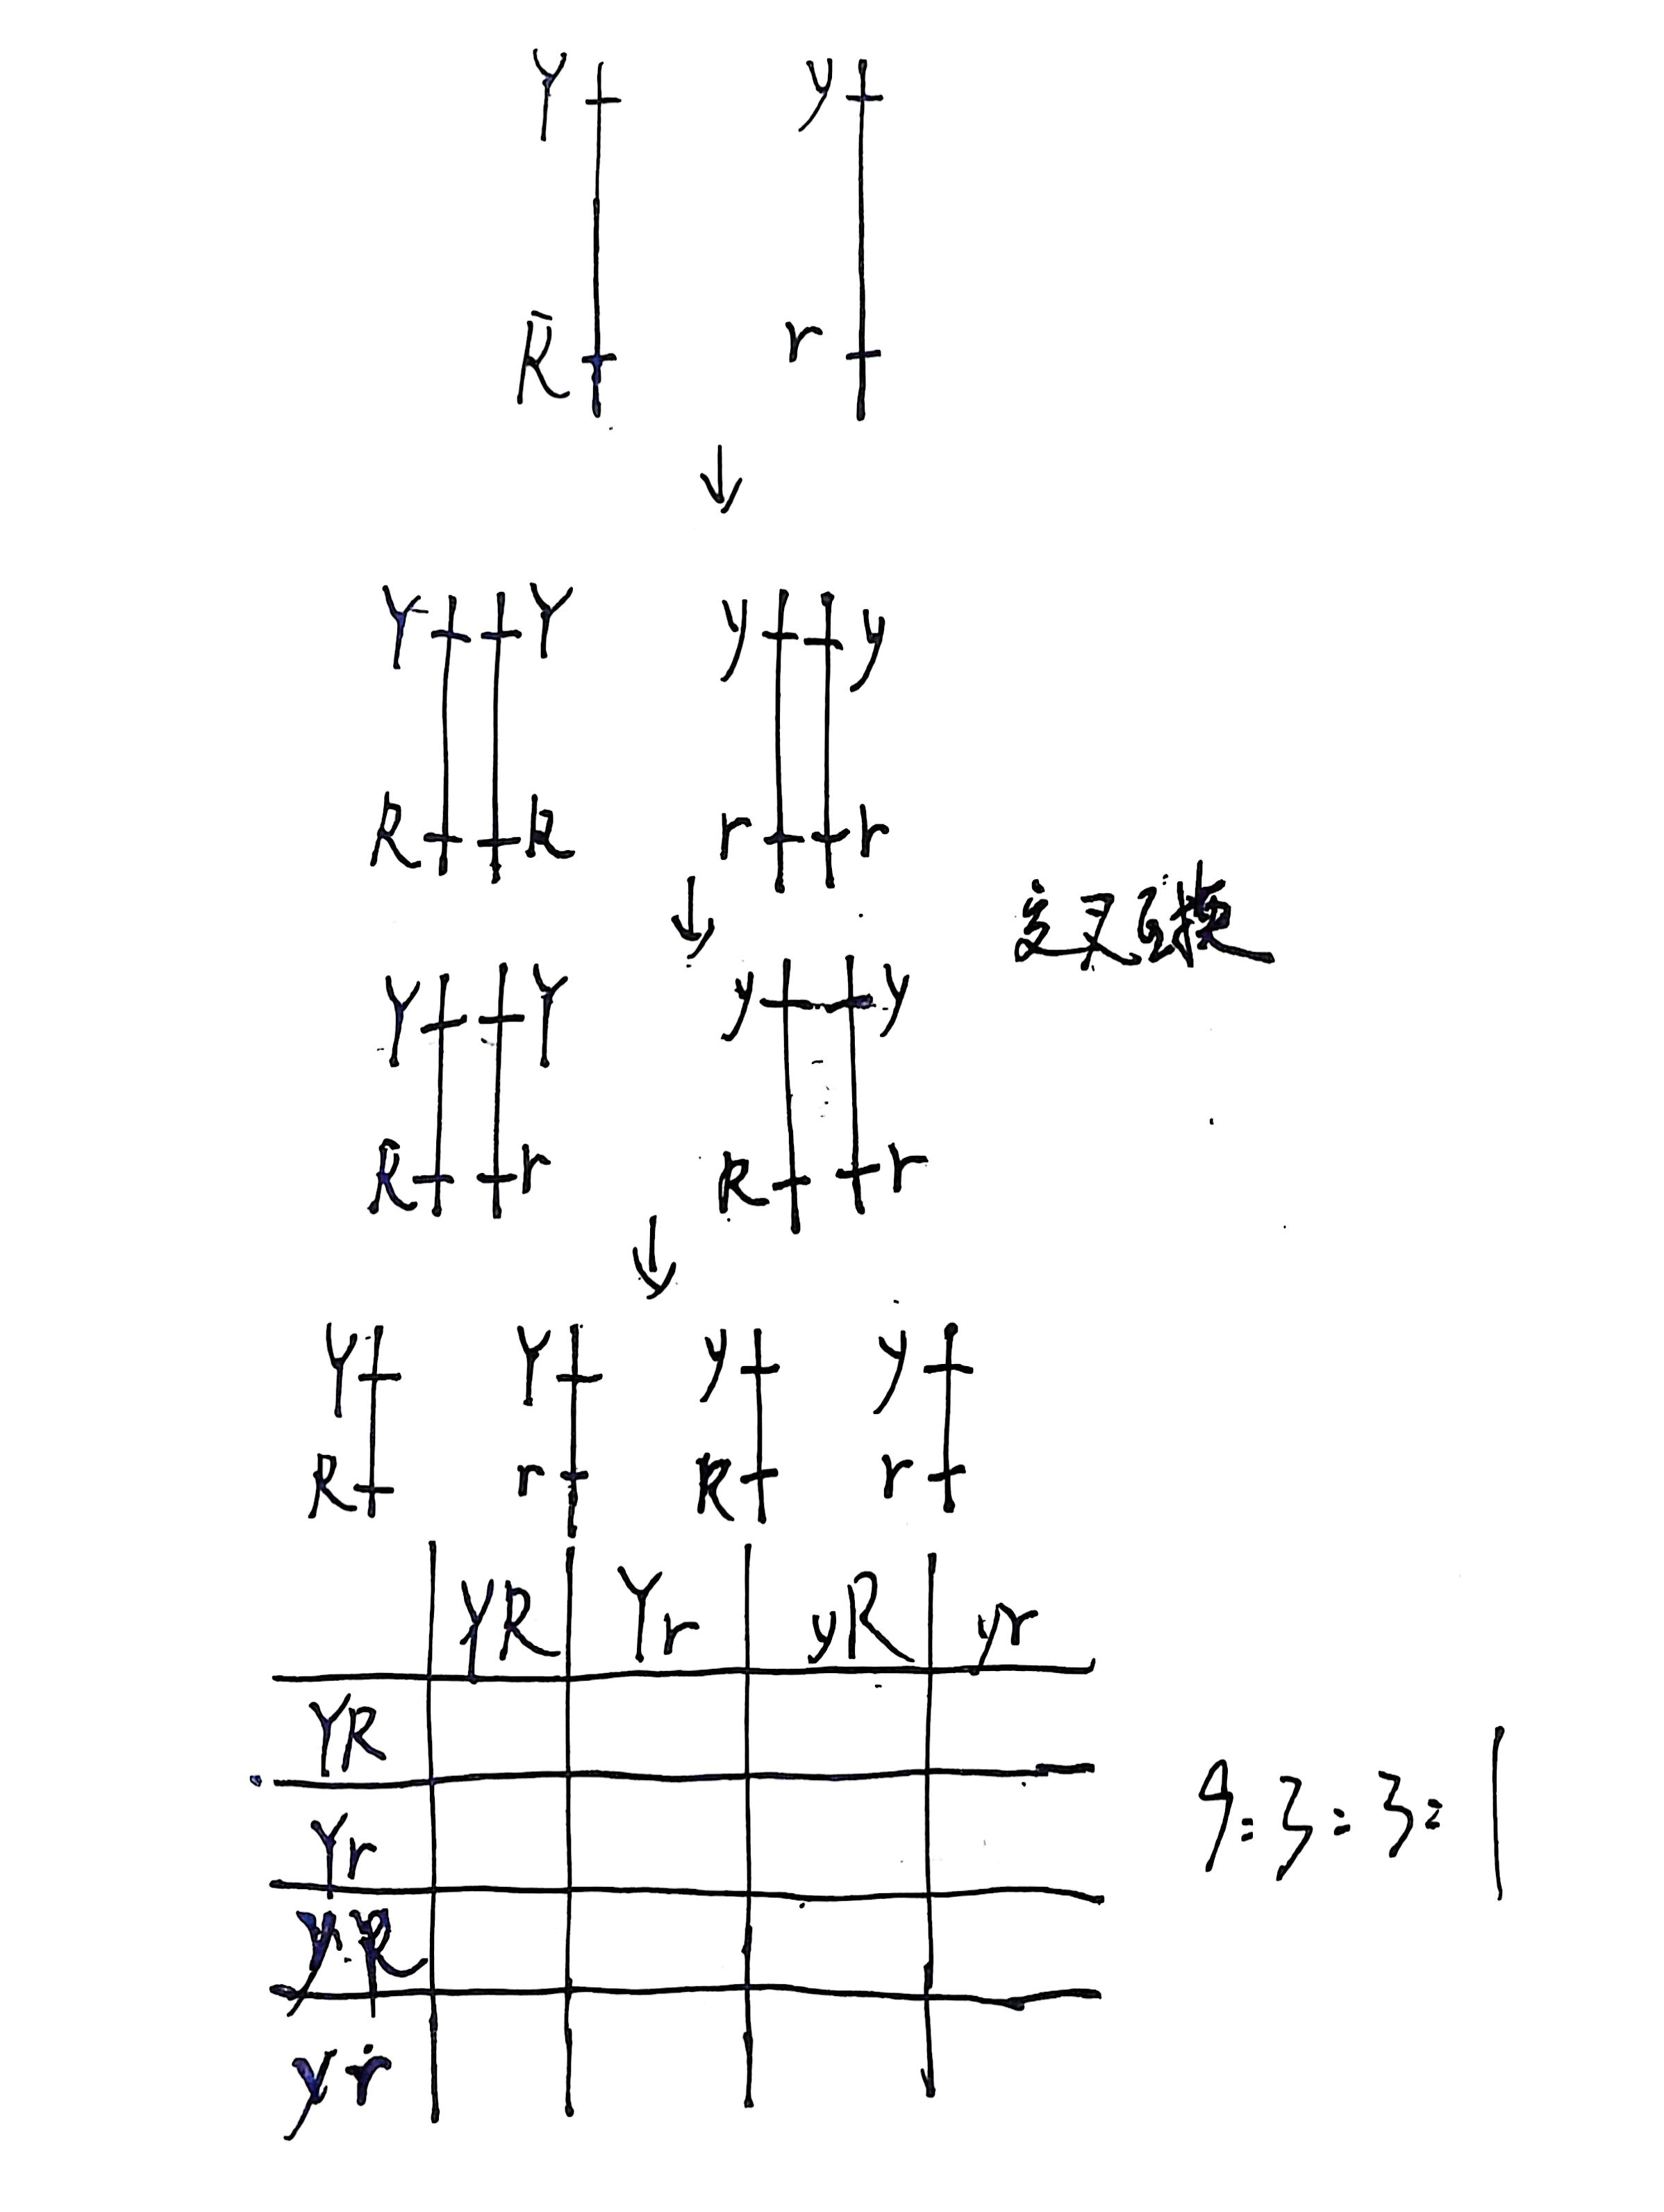 Y y
R r
Y Y y y
R R r r
交叉互换
Y Y y y
R r R r
Y Y y y
R r R r
YR Yr yR yr
YR
Yr
yR
yr
9:3:3:1